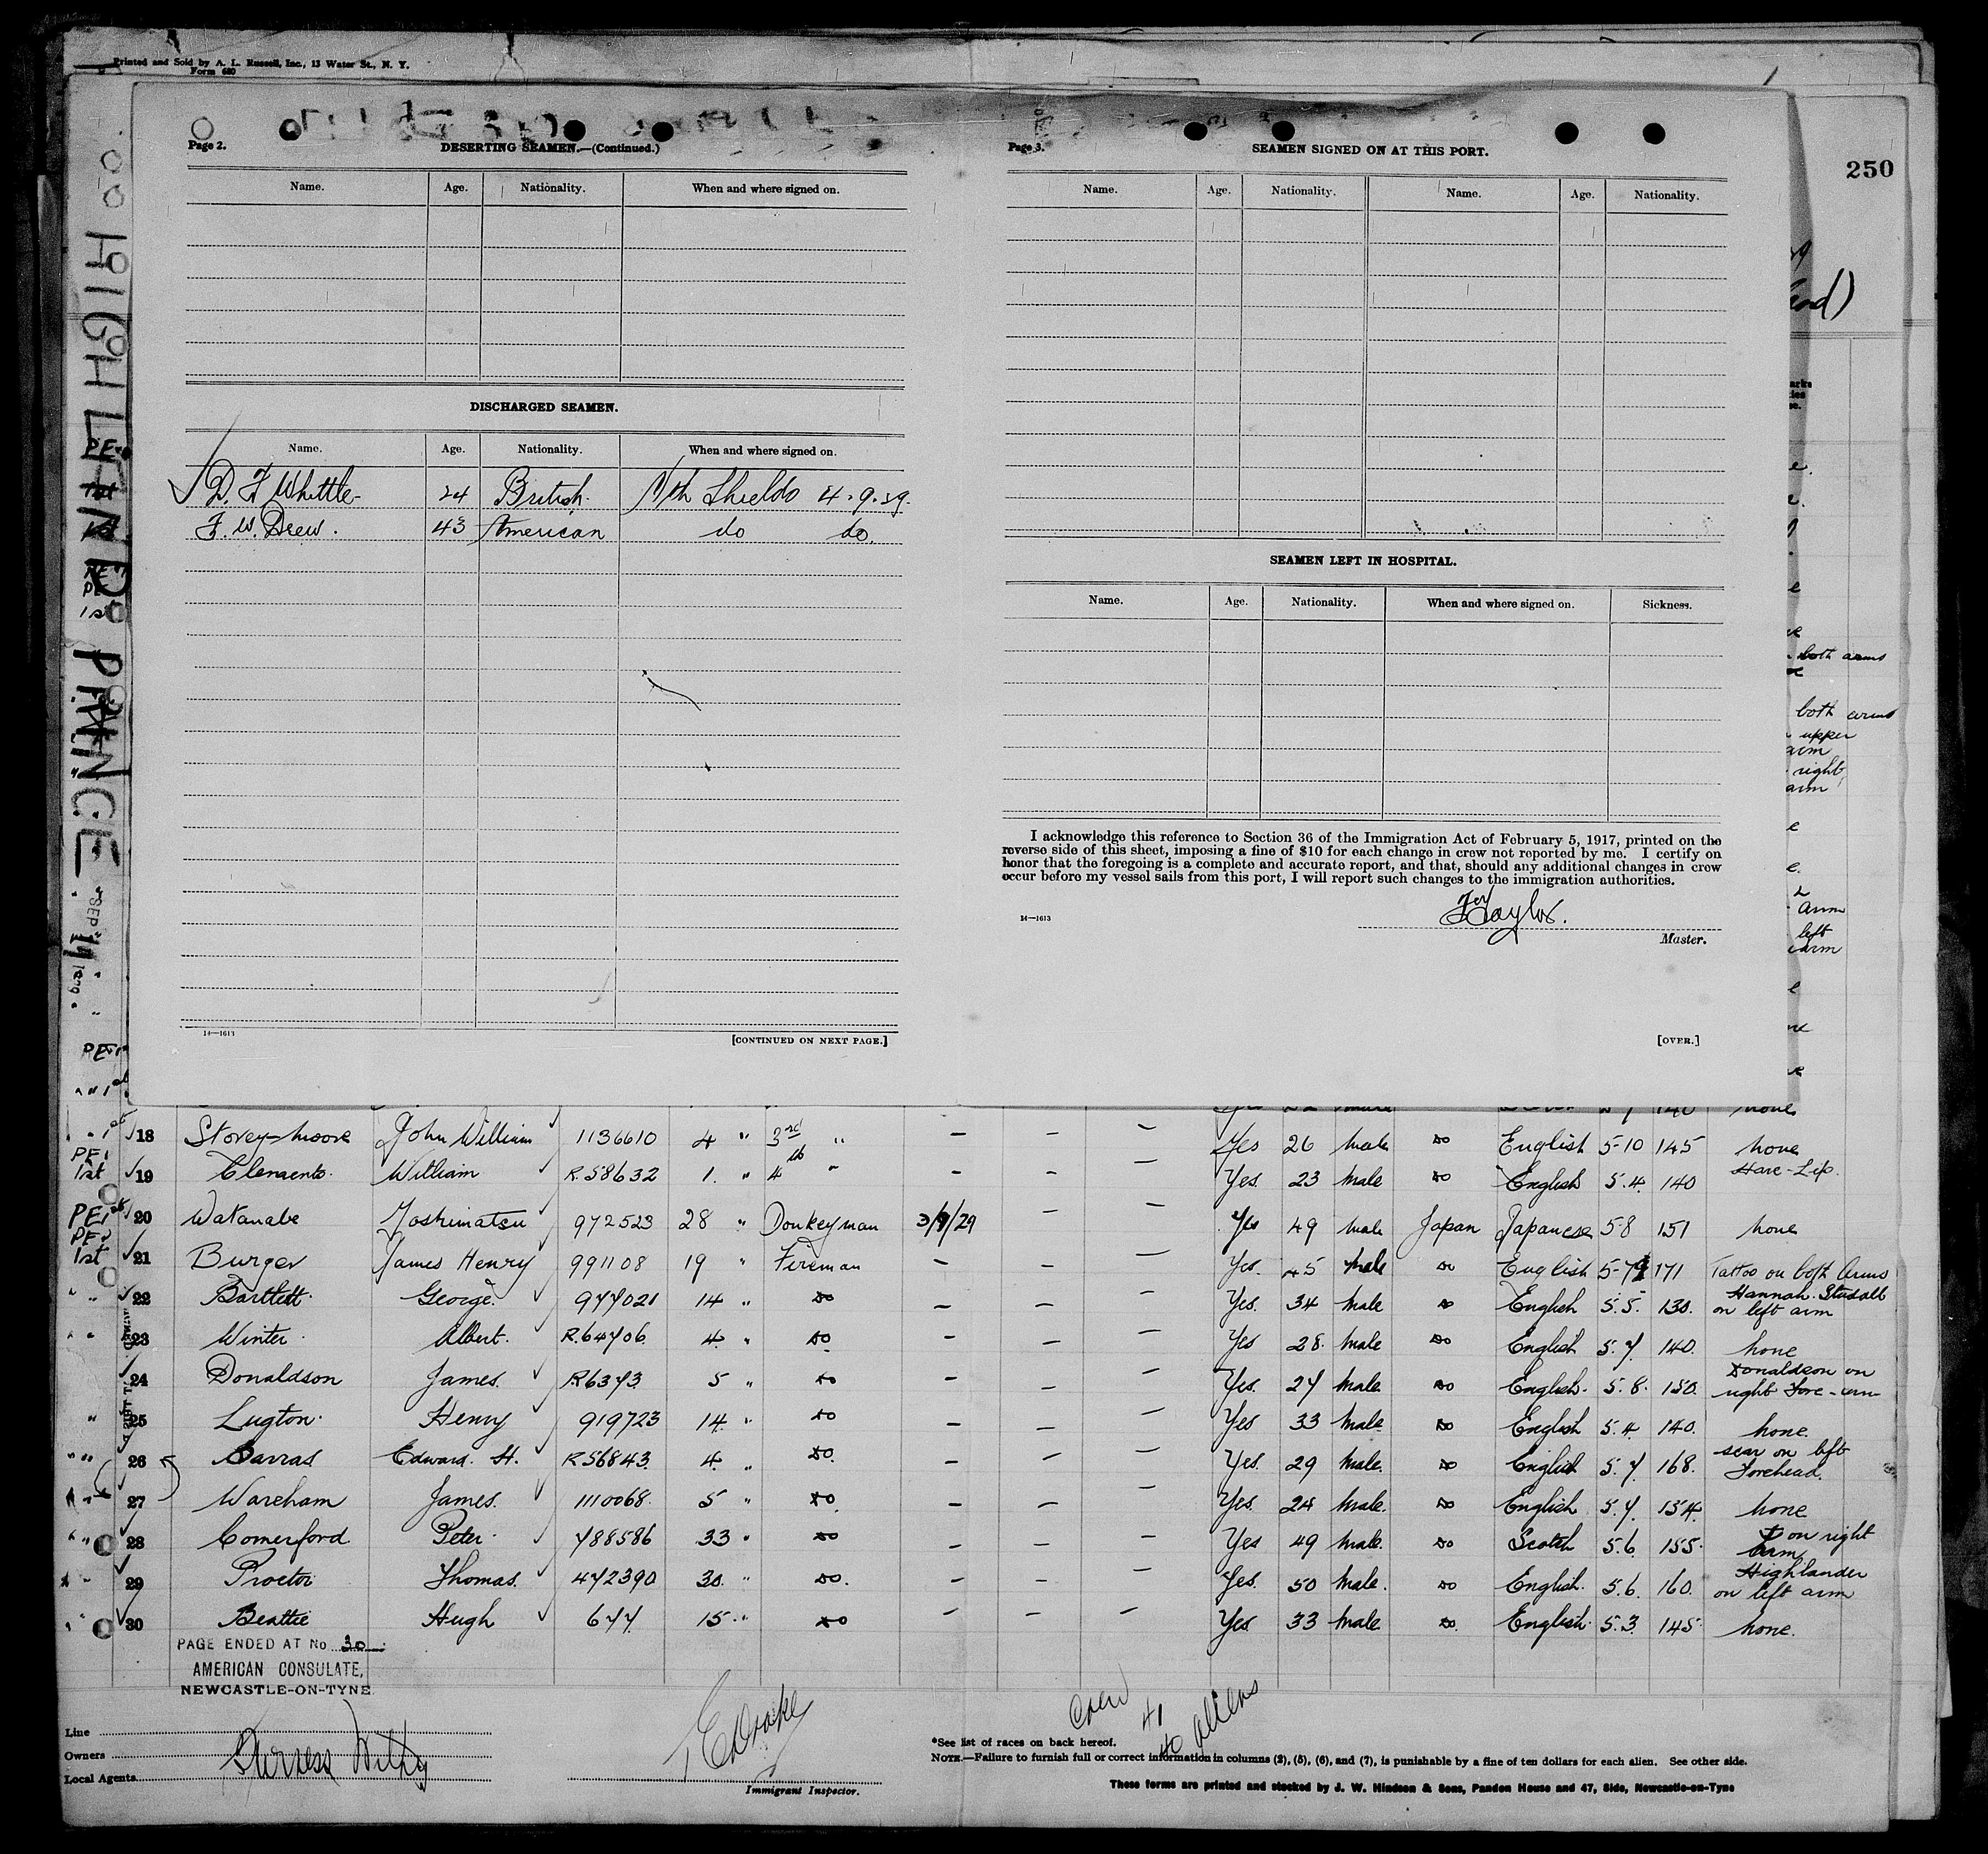 Printed and Sold by A. L. Russell, Inc., 13 Water St., N. Y.
Form 680
250
HIGHLAND PRINCE
Page 2.
DESERTING SEAMEN.—(Continued.)
Name. Age. Nationality. When and where signed on.
DISCHARGED SEAMEN.
Name. Age. Nationality. When and where signed on.
D. F. Whittle 24 British Nth Shields 4.9.39.
F. W. Drew. 43 American do do.
14—1613
[CONTINUED ON NEXT PAGE.]
Page 3.
SEAMEN SIGNED ON AT THIS PORT.
Name. Age. Nationality. Name. Age. Nationality.
SEAMEN LEFT IN HOSPITAL.
Name. Age. Nationality. When and where signed on. Sickness.
I acknowledge this reference to Section 36 of the Immigration Act of February 5, 1917, printed on the
reverse side of this sheet, imposing a fine of $10 for each change in crew not reported by me. I certify on
honor that the foregoing is a complete and accurate report, and that, should any additional changes in crew
occur before my vessel sails from this port, I will report such changes to the immigration authorities.
Taylor.
14—1613
Master.
[OVER.]
both arms
both arms
upper
arm
right
arm
arm
left
18 Storey-Moore John William 1136610 4 " 3rd " — — — Yes 26 Male Do English 5-10 145 None
PE1
1st 19 Clements. William R.58632 1. " 4th " — — — Yes. 23 Male Do English 5.4. 140 Hare-Lip.
PE1st 20 Watanabe Yoshimatsu 972523 28 " Donkeyman 3/9/29 — — Yes 49 Male Japan Japanese 5-8 151 None
1st 21 Burger James Henry 991108 19 " Fireman — — — Yes. 45 Male Do English 5-7 171 Tattoo on both Arms
22 Bartlett. George. 977021 14 " Do — — — Yes. 34 Male Do English 5.5. 130. Hannah. Studall
on left arm
23 Winter. Albert. R.64706. 4. " Do — — — Yes 28. Male Do English 5.7. 140. None
24 Donaldson James. R6373. 5 " Do — — — Yes. 27 Male. Do English. 5.8. 150. Donaldson on
right Fore-arm
25 Lugton. Henry 919723 14. " Do — — — Yes 33 Male. Do English 5.4. 140. None
26 Barras Edward. H. R56843. 4. " Do. — — — Yes. 29 Male. Do English 5.7. 168. scar on left
Forehead.
27 Wareham James. 1110068. 5 " Do. — — — Yes. 24 Male. Do English. 5.7. 154. None
28 Comerford Peter. 788586 33 " Do — — — Yes 49 Male. Do Scotch 5.6. 155. on right
Arm
29 Proctor Thomas. 472390 30. " Do. — — — Yes. 50 Male. Do English. 5.6. 160. Highlander
on left arm
30 Beattie Hugh 677 15 " Do — — — Yes 33 Male. Do. English. 5.3. 145 None.
PAGE ENDED AT No 30
AMERICAN CONSULATE,
NEWCASTLE-ON-TYNE.
Crew 41
40 aliens
Line
Owners
Local Agents
Furness Withy
E Drake
Immigrant Inspector.
*See list of races on back hereof.
NOTE.—Failure to furnish full or correct information in columns (2), (5), (6), and (7), is punishable by a fine of ten dollars for each alien. See other side.
These forms are printed and stocked by J. W. Hindson & Sons, Pandon House and 47, Side, Newcastle-on-Tyne